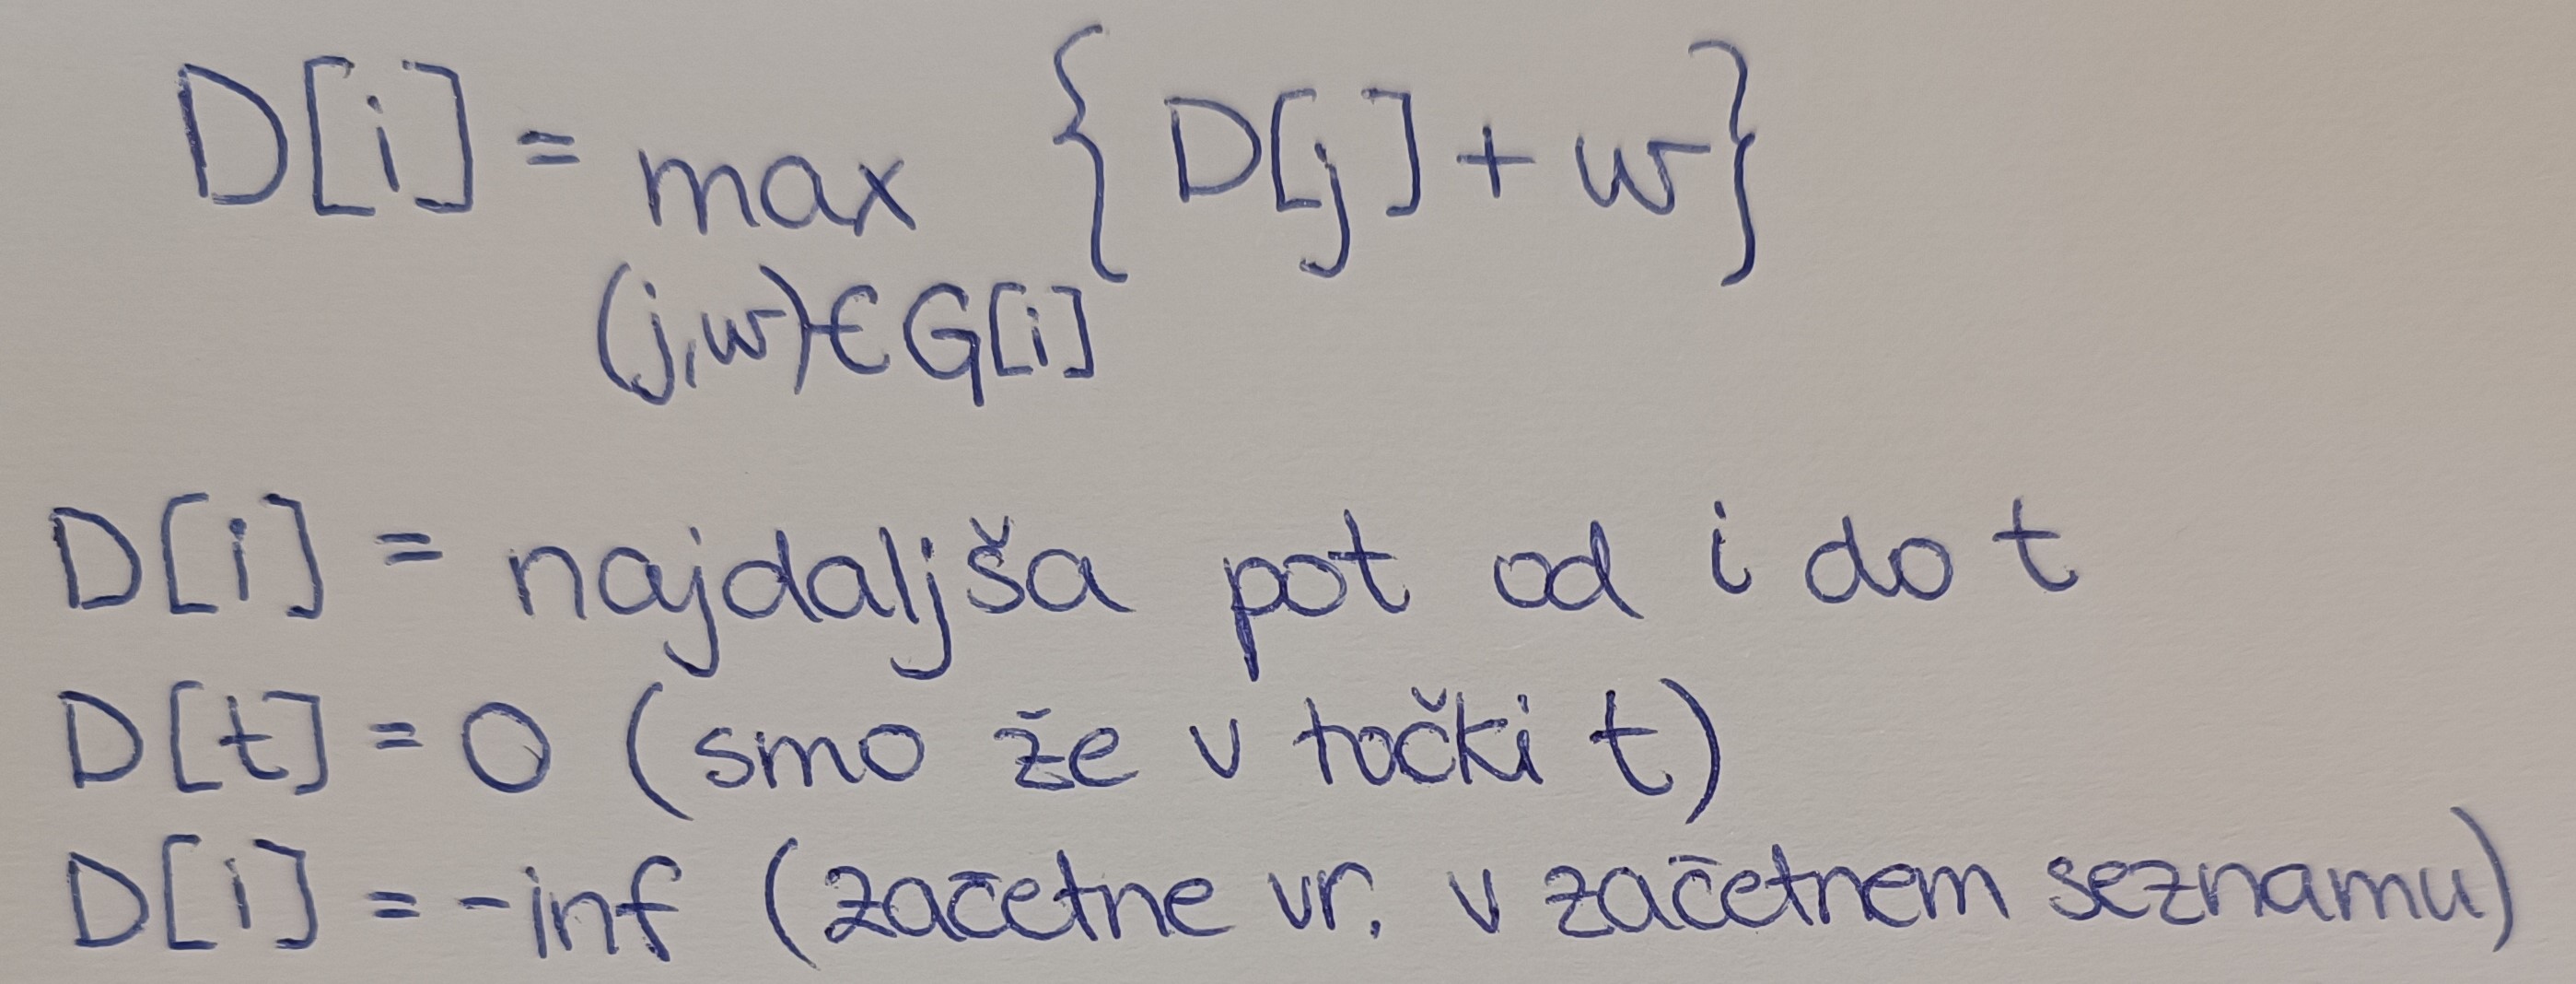 D[i] = max {D[j] + w}
(j,w)∈G[i]
D[i] = najdaljša pot od i do t
D[t] = 0 (smo že v točki t)
D[i] = -inf (začetne vr. v začetnem seznamu)